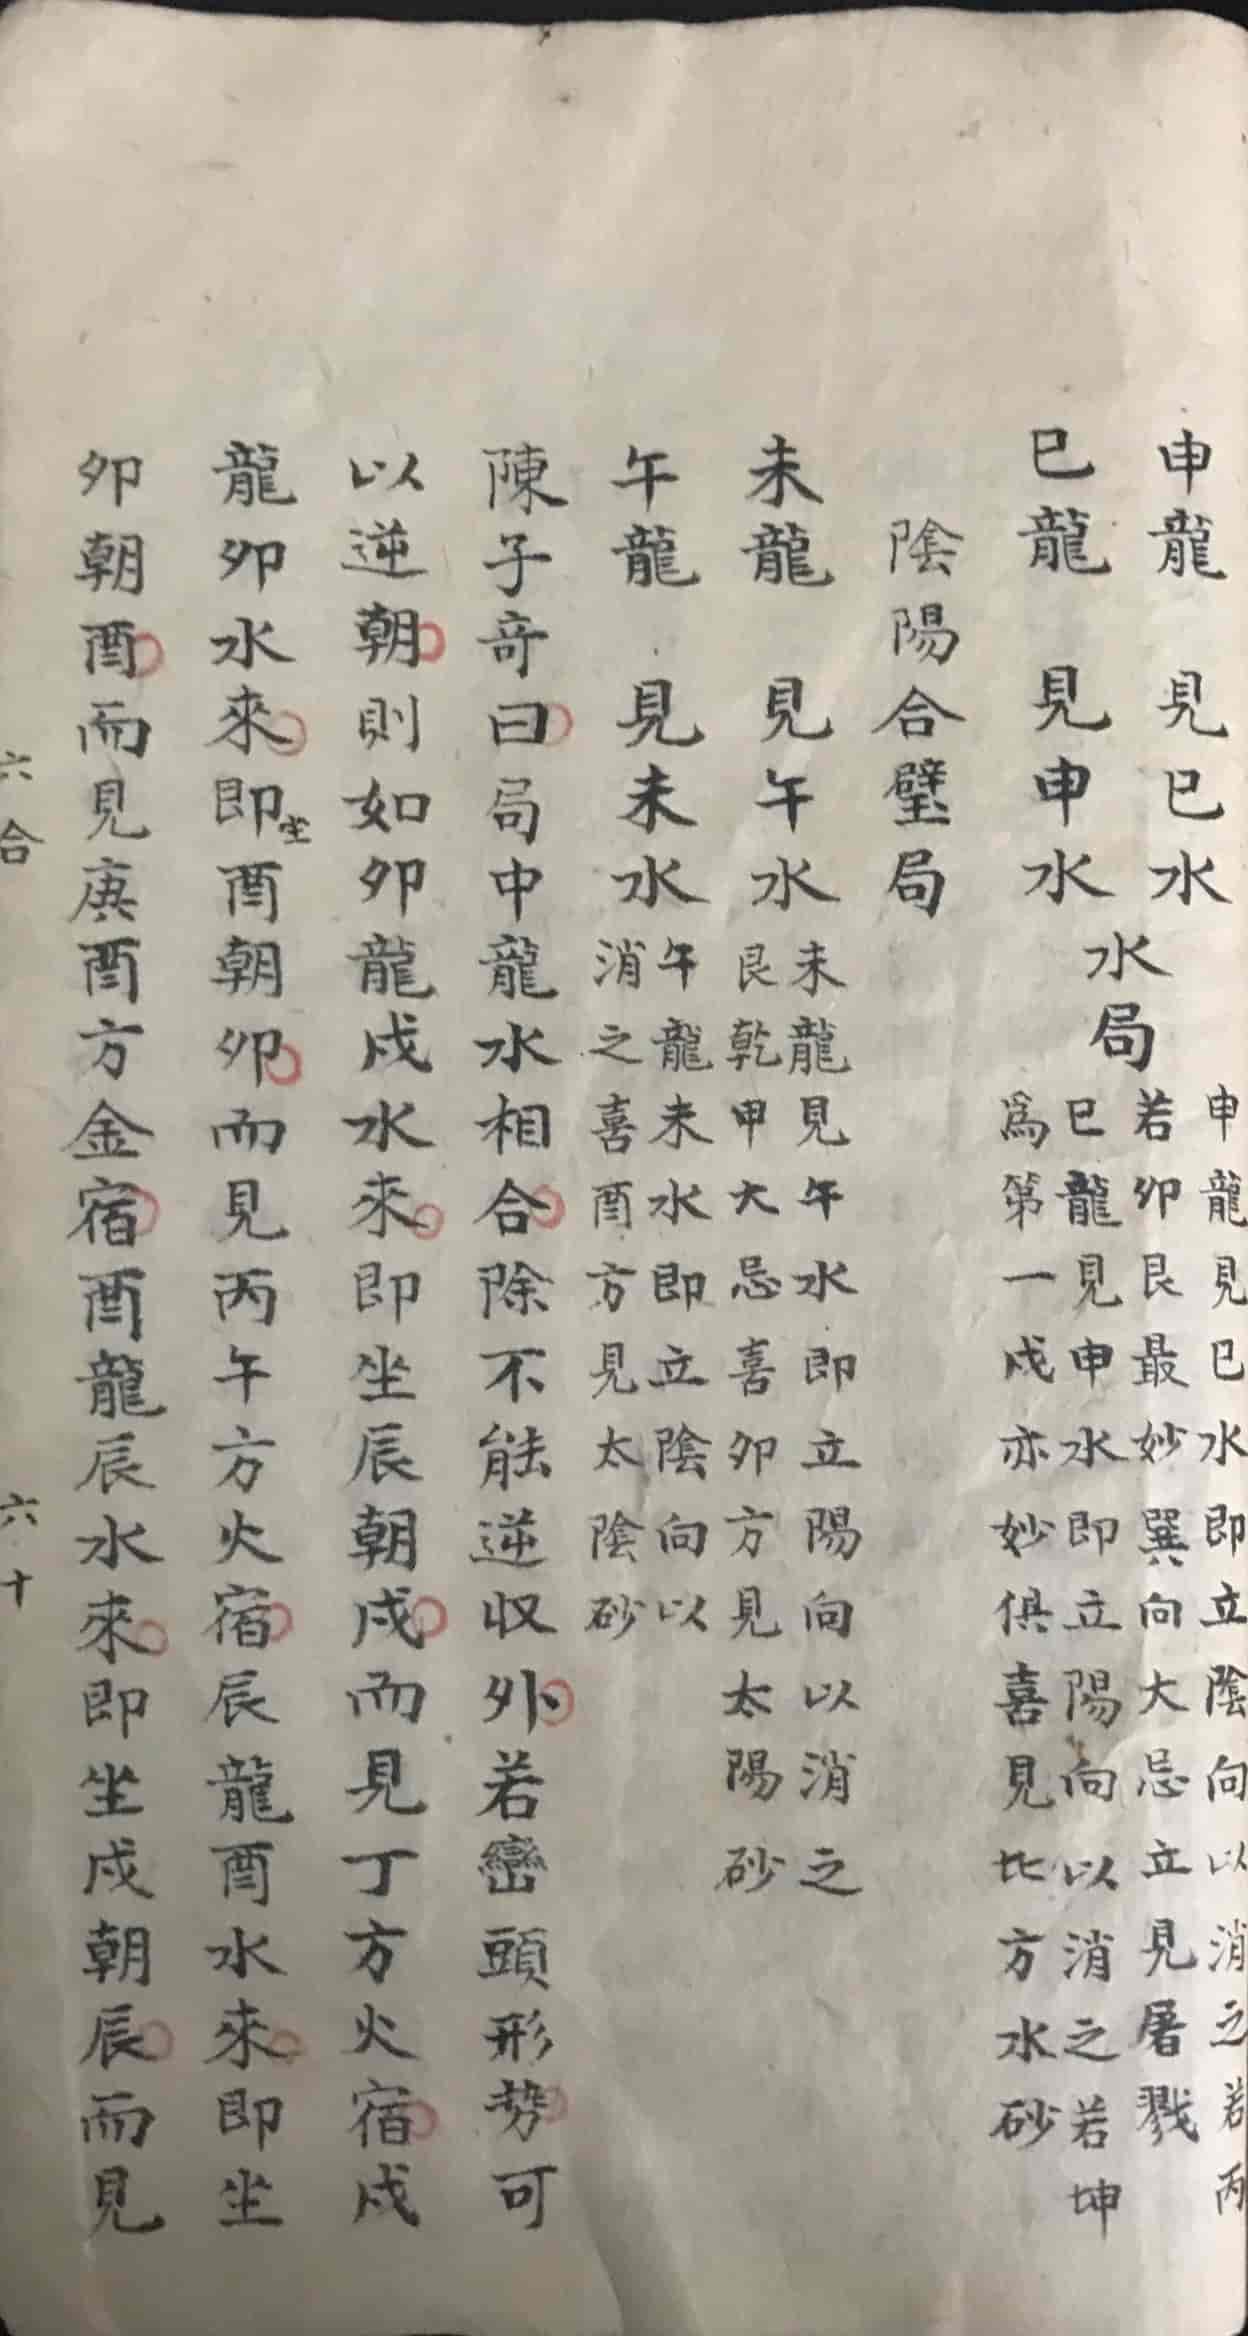 申龍　見巳水
巳龍　見申水
水局
申龍見巳水即立陰向以消之若丙
若卯艮最妙巽向大忌立見屠戮
巳龍見申水即立陽向以消之若坤
爲第一戌亦妙俱喜見比方水砂
陰陽合璧局
未龍　見午水
未龍見午水即立陽向以消之
艮乾申大忌喜卯方見太陽砂
午龍　見未水
午龍未水即立陰向以
消之喜酉方見太陰砂
陳子奇曰局中龍水相合除不能逆収外若巒頭形勢可
以逆朝則如卯龍戌水來即坐辰朝戌而見丁方火宿戌
龍卯水來即坐酉朝卯而見丙午方火宿辰龍酉水來即坐
卯朝酉而見庚酉方金宿酉龍辰水來即坐戌朝辰而見
六合
六十